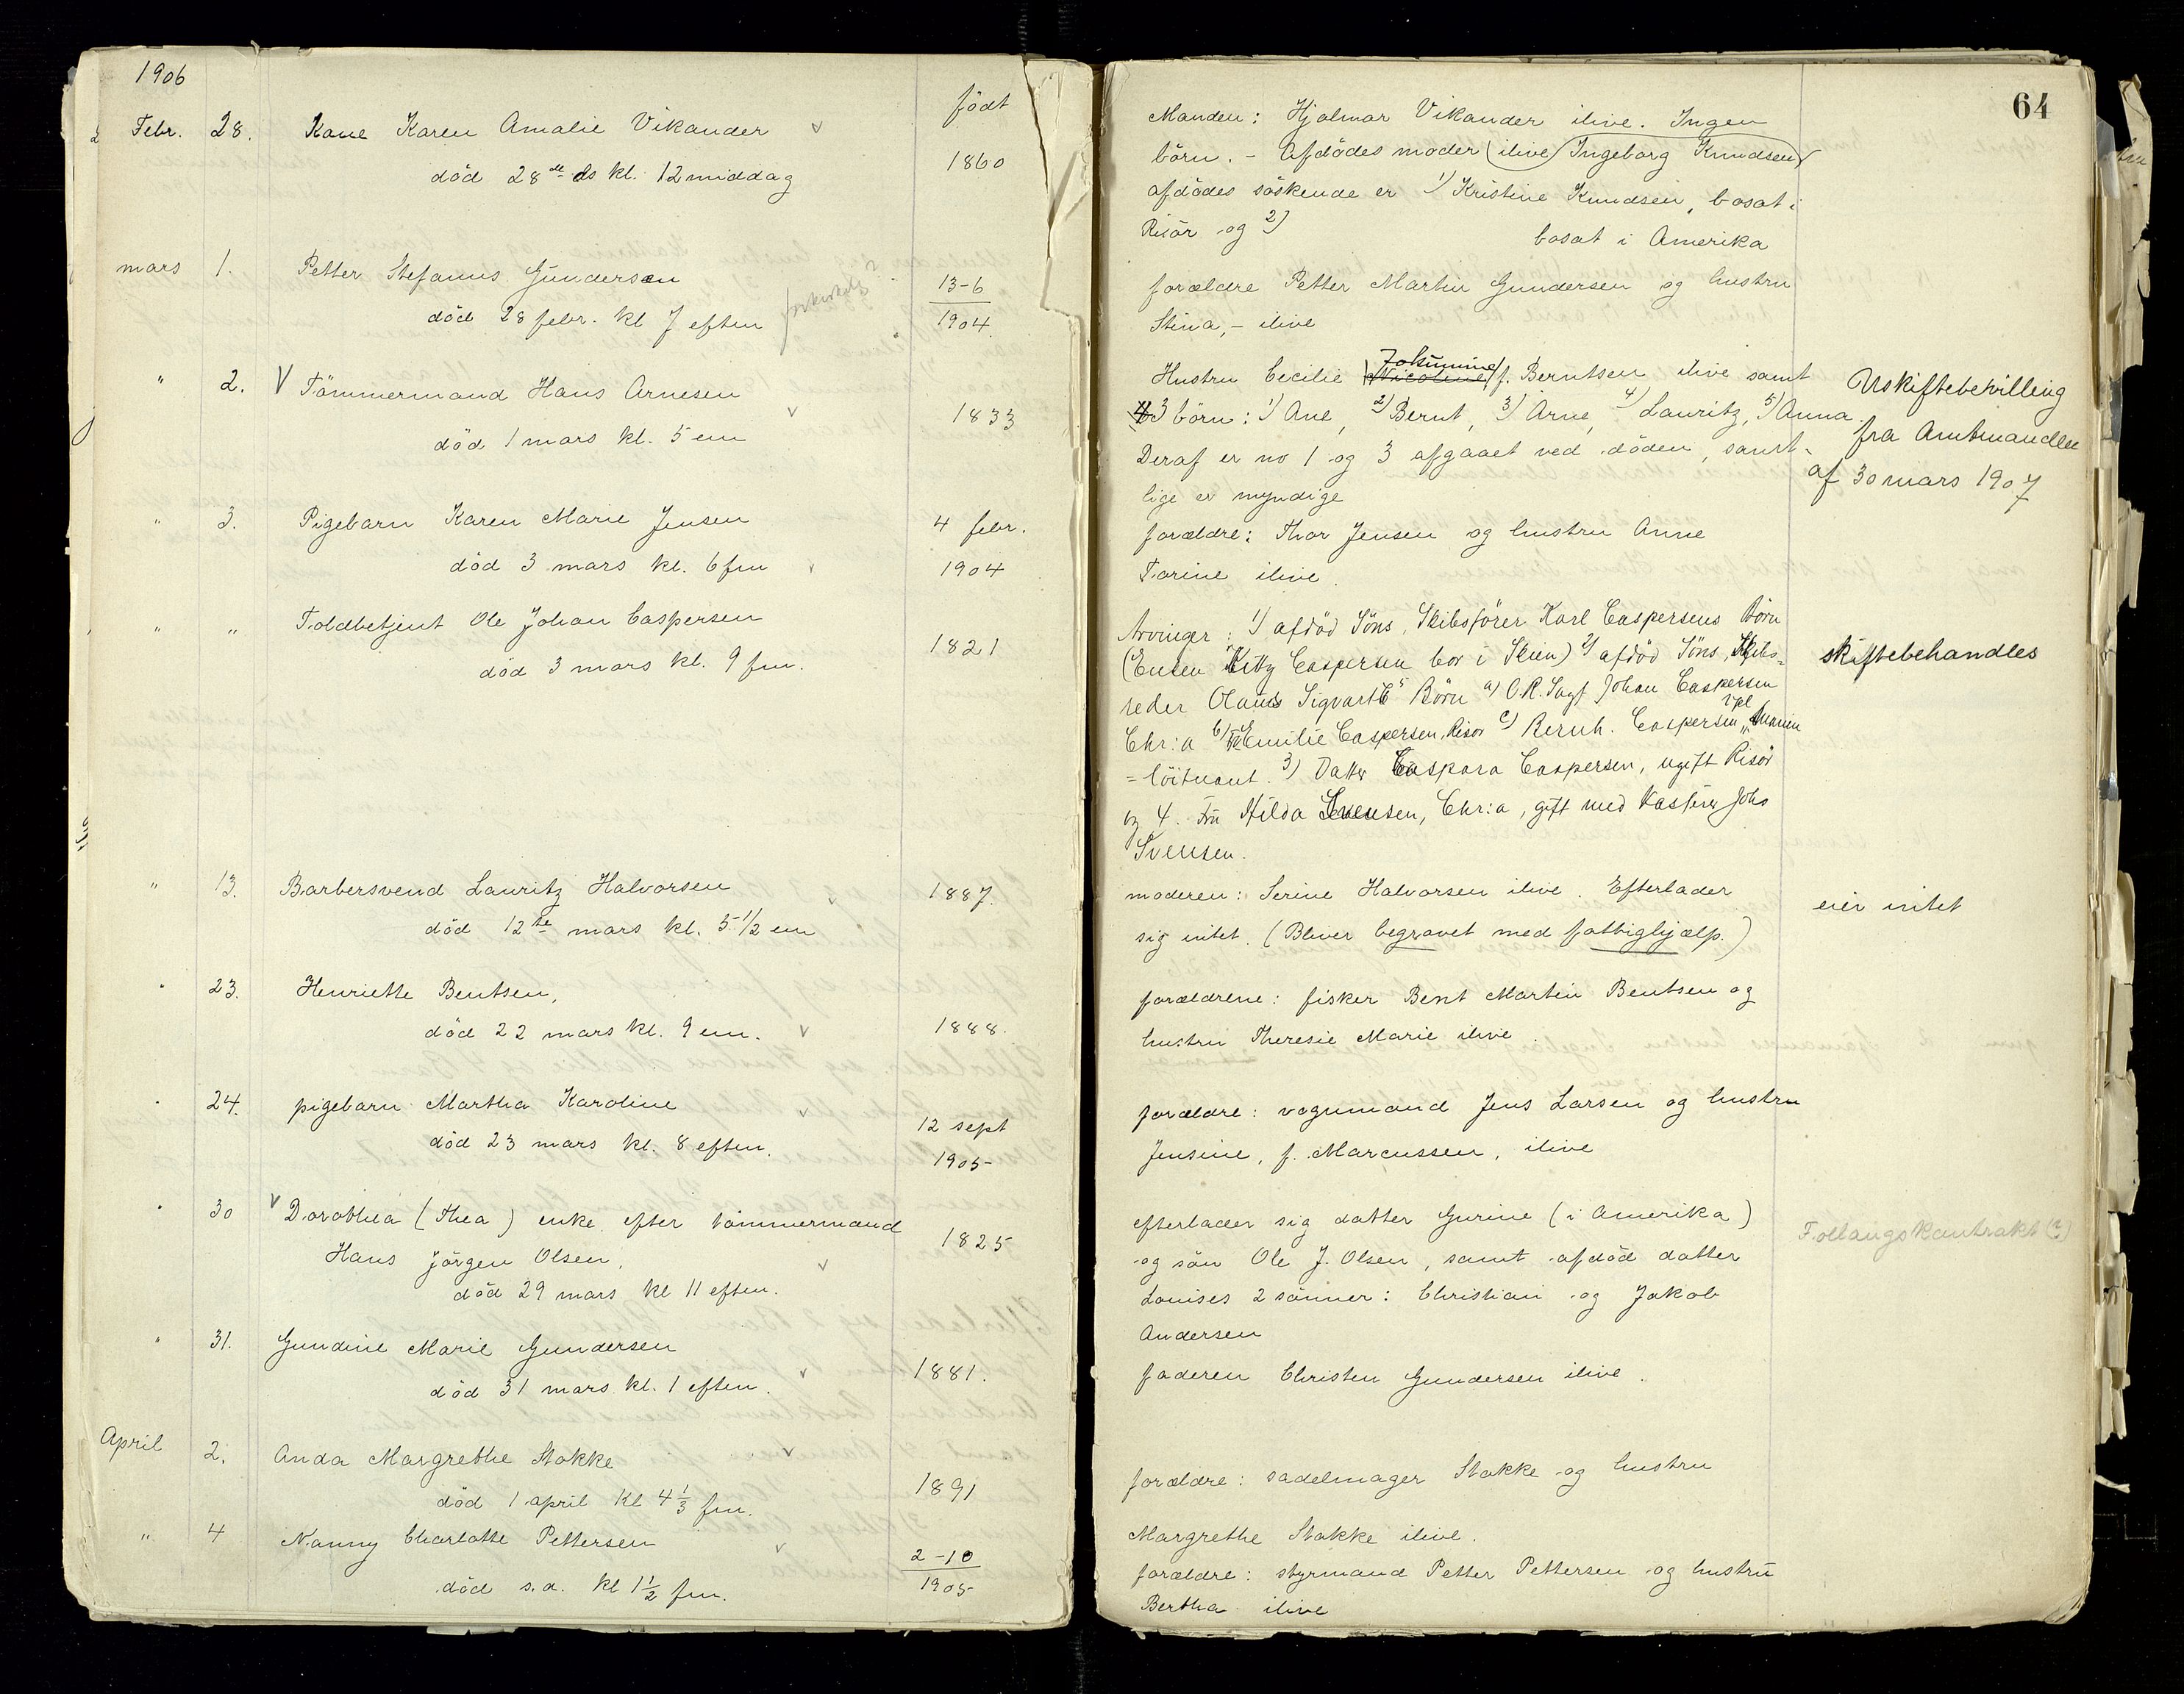 1906
født
Febr. 28. Kone Karen Amalie Vikander
død 28de ds kl. 12 middag
1860
mars 1. Petter Stefanus Gundersen
død 28 febr. kl 7 eftm
13-6
1904
" 2. V Tömmermand Hans Arnesen
död 1 mars kl. 5 em
1833
" 3. Pigebarn Karen Marie Jensen
död 3 mars kl. 6 fm
4 febr.
1904
" " Toldbetjent Ole Johan Caspersen
död 3 mars kl. 9 fm.
1821
" 13. Barbersvend Lauritz Halvorsen
död 12te mars kl. 5 1/2 em
1887.
" 23. Henriette Bentsen,
död 22 mars kl. 9 em.
1888.
" 24. pigebarn Martha Karoline
död 23 mars kl. 8 eftm.
12 sept
1905
" 30 V Dorothea (Thea) enke efter tömmermand
Hans Jörgen Olsen,
död 29 mars kl 11 eftm.
1825
" 31. Gundine Marie Gundersen
död 31 mars kl. 1 eftm.
1881.
April 2. Anda Margrethe Stokke
död 1 april kl 4 1/3 fm.
1891
" 4 Nanny Charlotte Pettersen
död s.d. kl 1 1/2 fm.
2-10
1905
64
Manden: Hjalmar Vikander ilive. Ingen
börn. - Afdödes moder (ilive) Ingeborg Knudsen,
afdödes söskende er 1) Kristine Knudsen, bosat i
Risör og 2)
bosat i Amerika
forældre Petter Martin Gundersen og hustru
Stina, - ilive
Jokumine
Hustru Cecilie Nicoline f. Berntsen ilive samt
3 börn: 1) Ane, 2) Bernt, 3) Arne, 4) Lauritz, 5) Anna.
Deraf er no 1 og 3 afgaaet ved döden, samt-
lige er myndige
Uskiftebevilling
fra Amtmanden
af 30 mars 1907
forældre: Thor Jensen og hustru Anne
Torine ilive.
Arvinger: 1) afdöd Söns, Skibsförer Karl Caspersens Börn
(Enken Kitty Caspersen bor i Skien) 2) afdöd Söns, Skibs-
reder Olaus Sigvart C's Börn a) O.R. Sagf Johan Caspersen
Chr:a b) Emilie Caspersen, Risör c) Bernh. Caspersen, Marin
=löitnant. 3) Datter Caspara Caspersen, ugift Risör
og 4. Fru Hilda Svensen, Chr:a, gift med Kasserer Johs
Svensen.
skiftebehandles
moderen: Serine Halvorsen ilive. Efterlader
sig intet. (Bliver begravet med fattighjælp.)
eier intet
forældrene: fisker Bent Martin Bentsen og
hustru Theresie Marie ilive.
forældre: vognmand Jens Larsen og hustru
Jensine, f. Marcussen, ilive
efterlader sig datter Gurine (i Amerika)
og sön Ole J. Olsen, samt afdöd datter
Louises 2 sönner: Christian og Jakob
Andersen
Follaugskontrakt (?)
faderen Christen Gundersen ilive.
forældre: sadelmager Stokke og hustru
Margrethe Stokke ilive.
forældre: styrmand Petter Pettersen og hustru
Bertha ilive